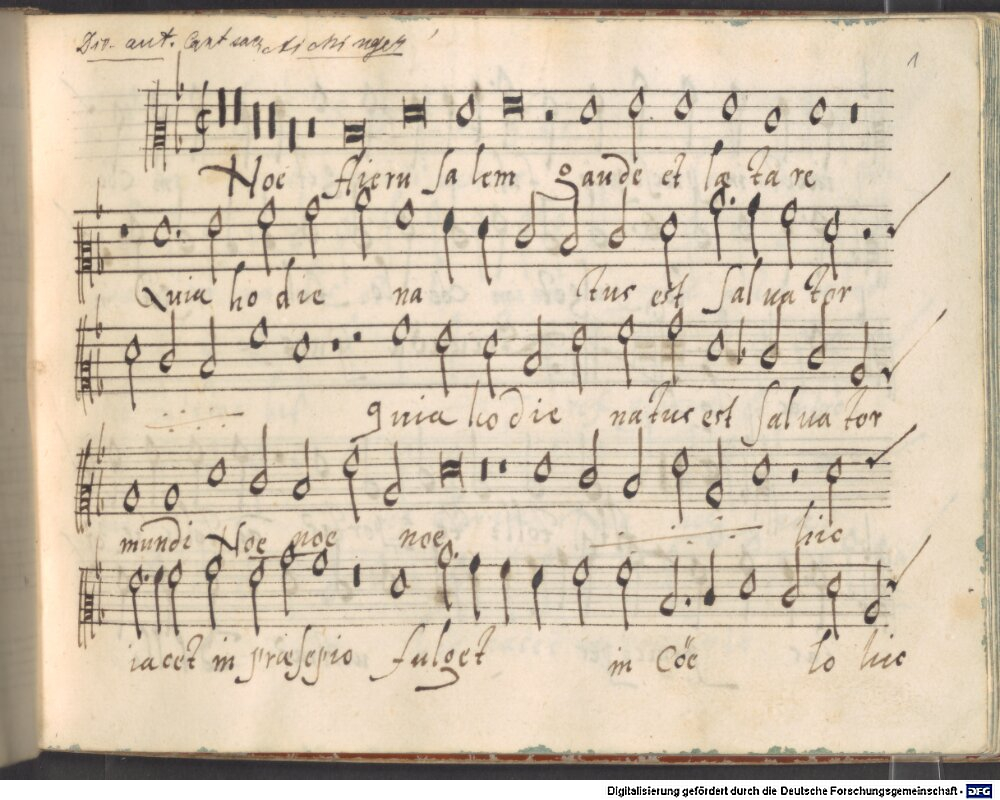 Div. aut. Cantiones Aichinger
1
Noe Hieru sa lem gaude et læ ta re
Quia ho die na tus est Sal va tor
quia ho die natus est Salva tor
mundi Noe noe noe hic
iacet in præsepio fulget in Cöe lo hic
Digitalisierung gefördert durch die Deutsche Forschungsgemeinschaft - DFG